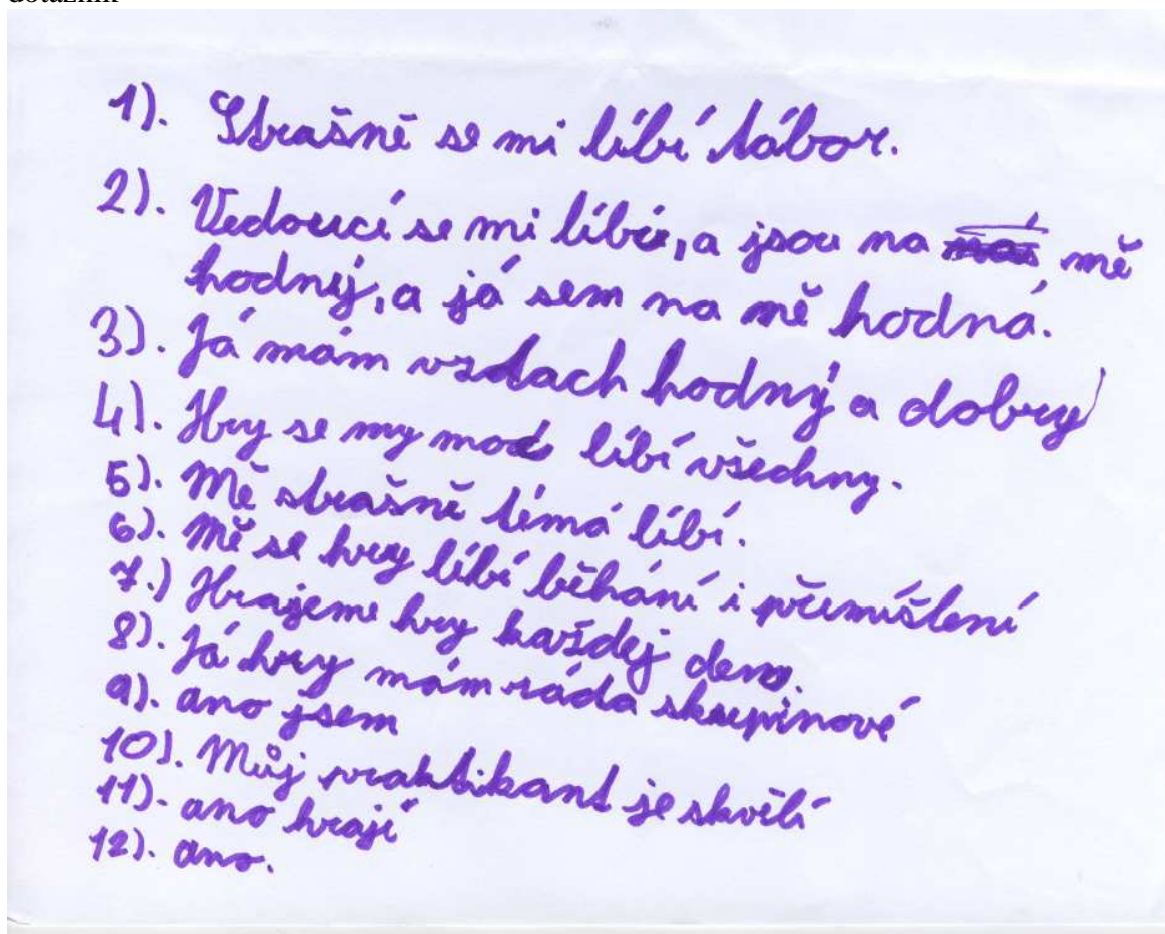 dotazník
1). Strašně se mi líbí tábor.
2). Vedoucí se mi líbí, a jsou na mě
hodný, a já sem na mě hodná.
3). Já mám vzdach hodný a dobrý
4). Hry se my moc líbí všechny.
5). Mě strašně témá líbí.
6). Mě se hry líbí běhání i přemíšlení
7.) Hrajeme hry každej den.
8). Já hry mám ráda skupinové
9). ano jsem
10). Můj praktikant je skvělí
11). ano hrají
12). ano.